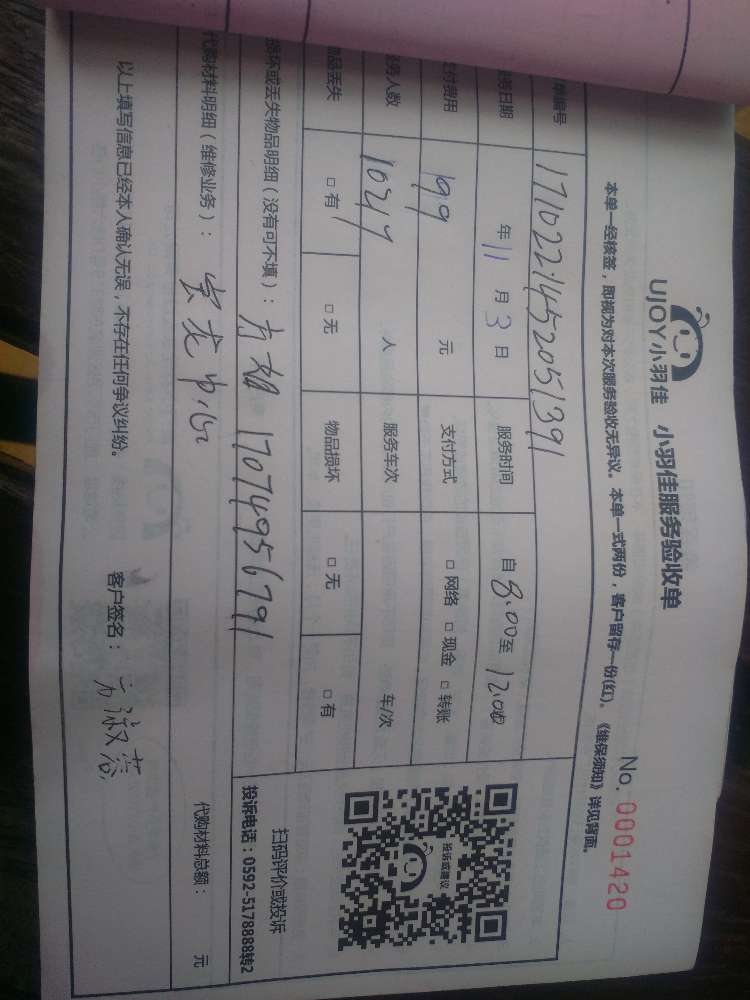 UJOY小羽佳 小羽佳服务验收单
No. 0001420
本单一经核签，即视为对本次服务验收无异议。本单一式两份，客户留存一份(红)。《维保须知》详见背面。
单编号 1710221452051391
务日期 年 11 月 3 日 服务时间 自 8:00 至 12:00
付费用 199 元 支付方式 □ 网络 □ 现金 □ 转账
务人数 人 服务车次 车/次
品丢失 □ 有 □ 无 物品损坏 □ 无 □ 有
投诉或建议
扫码评价或投诉
投诉电话：0592-5178888转2
损坏或丢失物品明细（没有可不填）： 方姐 17074956791
代购材料明细（维修业务）：
代购材料总额： 元
以上填写信息已经本人确认无误，不存在任何争议纠纷。 客户签名： 方淑蓉